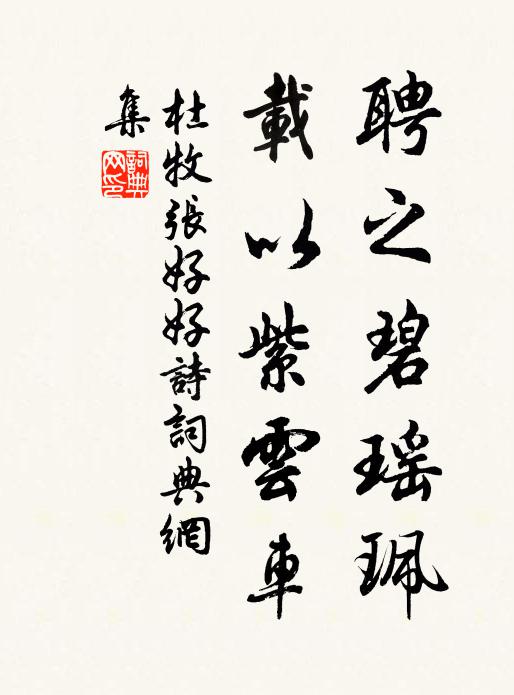 聘之碧瑶珮
載以紫雲車
杜牧張好好詩詞典網
集
詞典网印